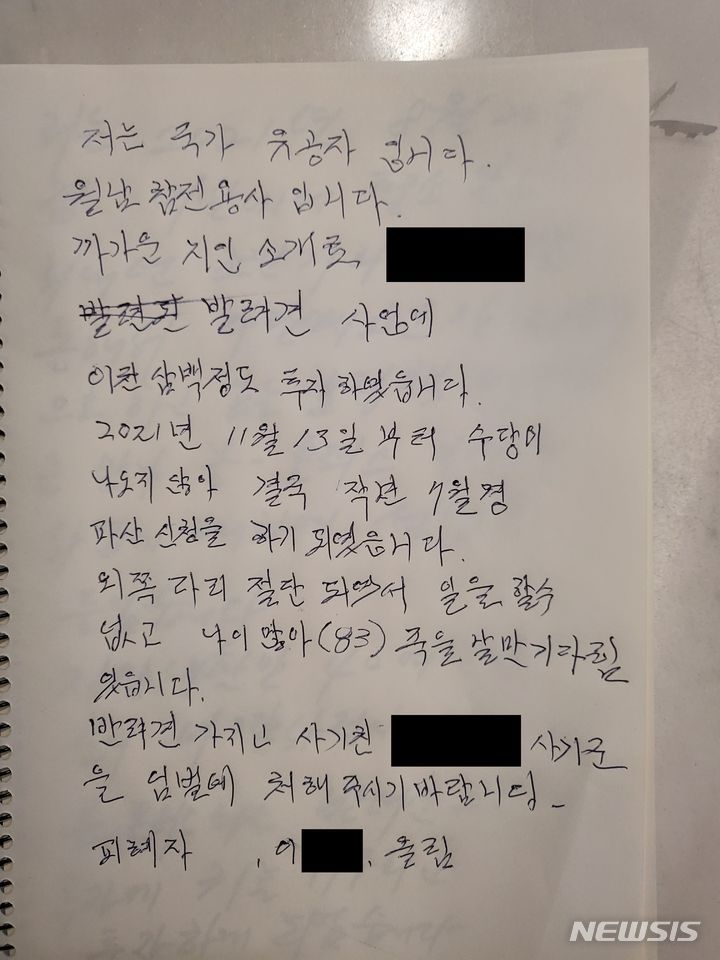 저는 국가 유공자 입니다.
월남 참전용사 입니다.
까가운 지인 소개로
발려견 사업에
이천 삼백정도 투자 하였읍니다.
2021년 11월 13일 부터 수당이
나오지 않아 결국 작년 7월경
파산 신청을 하기 되였읍니다.
외쪽 다리 절단 되여서 일을 할수
없고 나이 많아 (83) 죽을 날만 기다림
있읍니다.
반려견 가지고 사기친 사기꾼
을 엄벌에 처해 주시기 바랍니다.
피해자 , 이 . 올림
NEWSIS